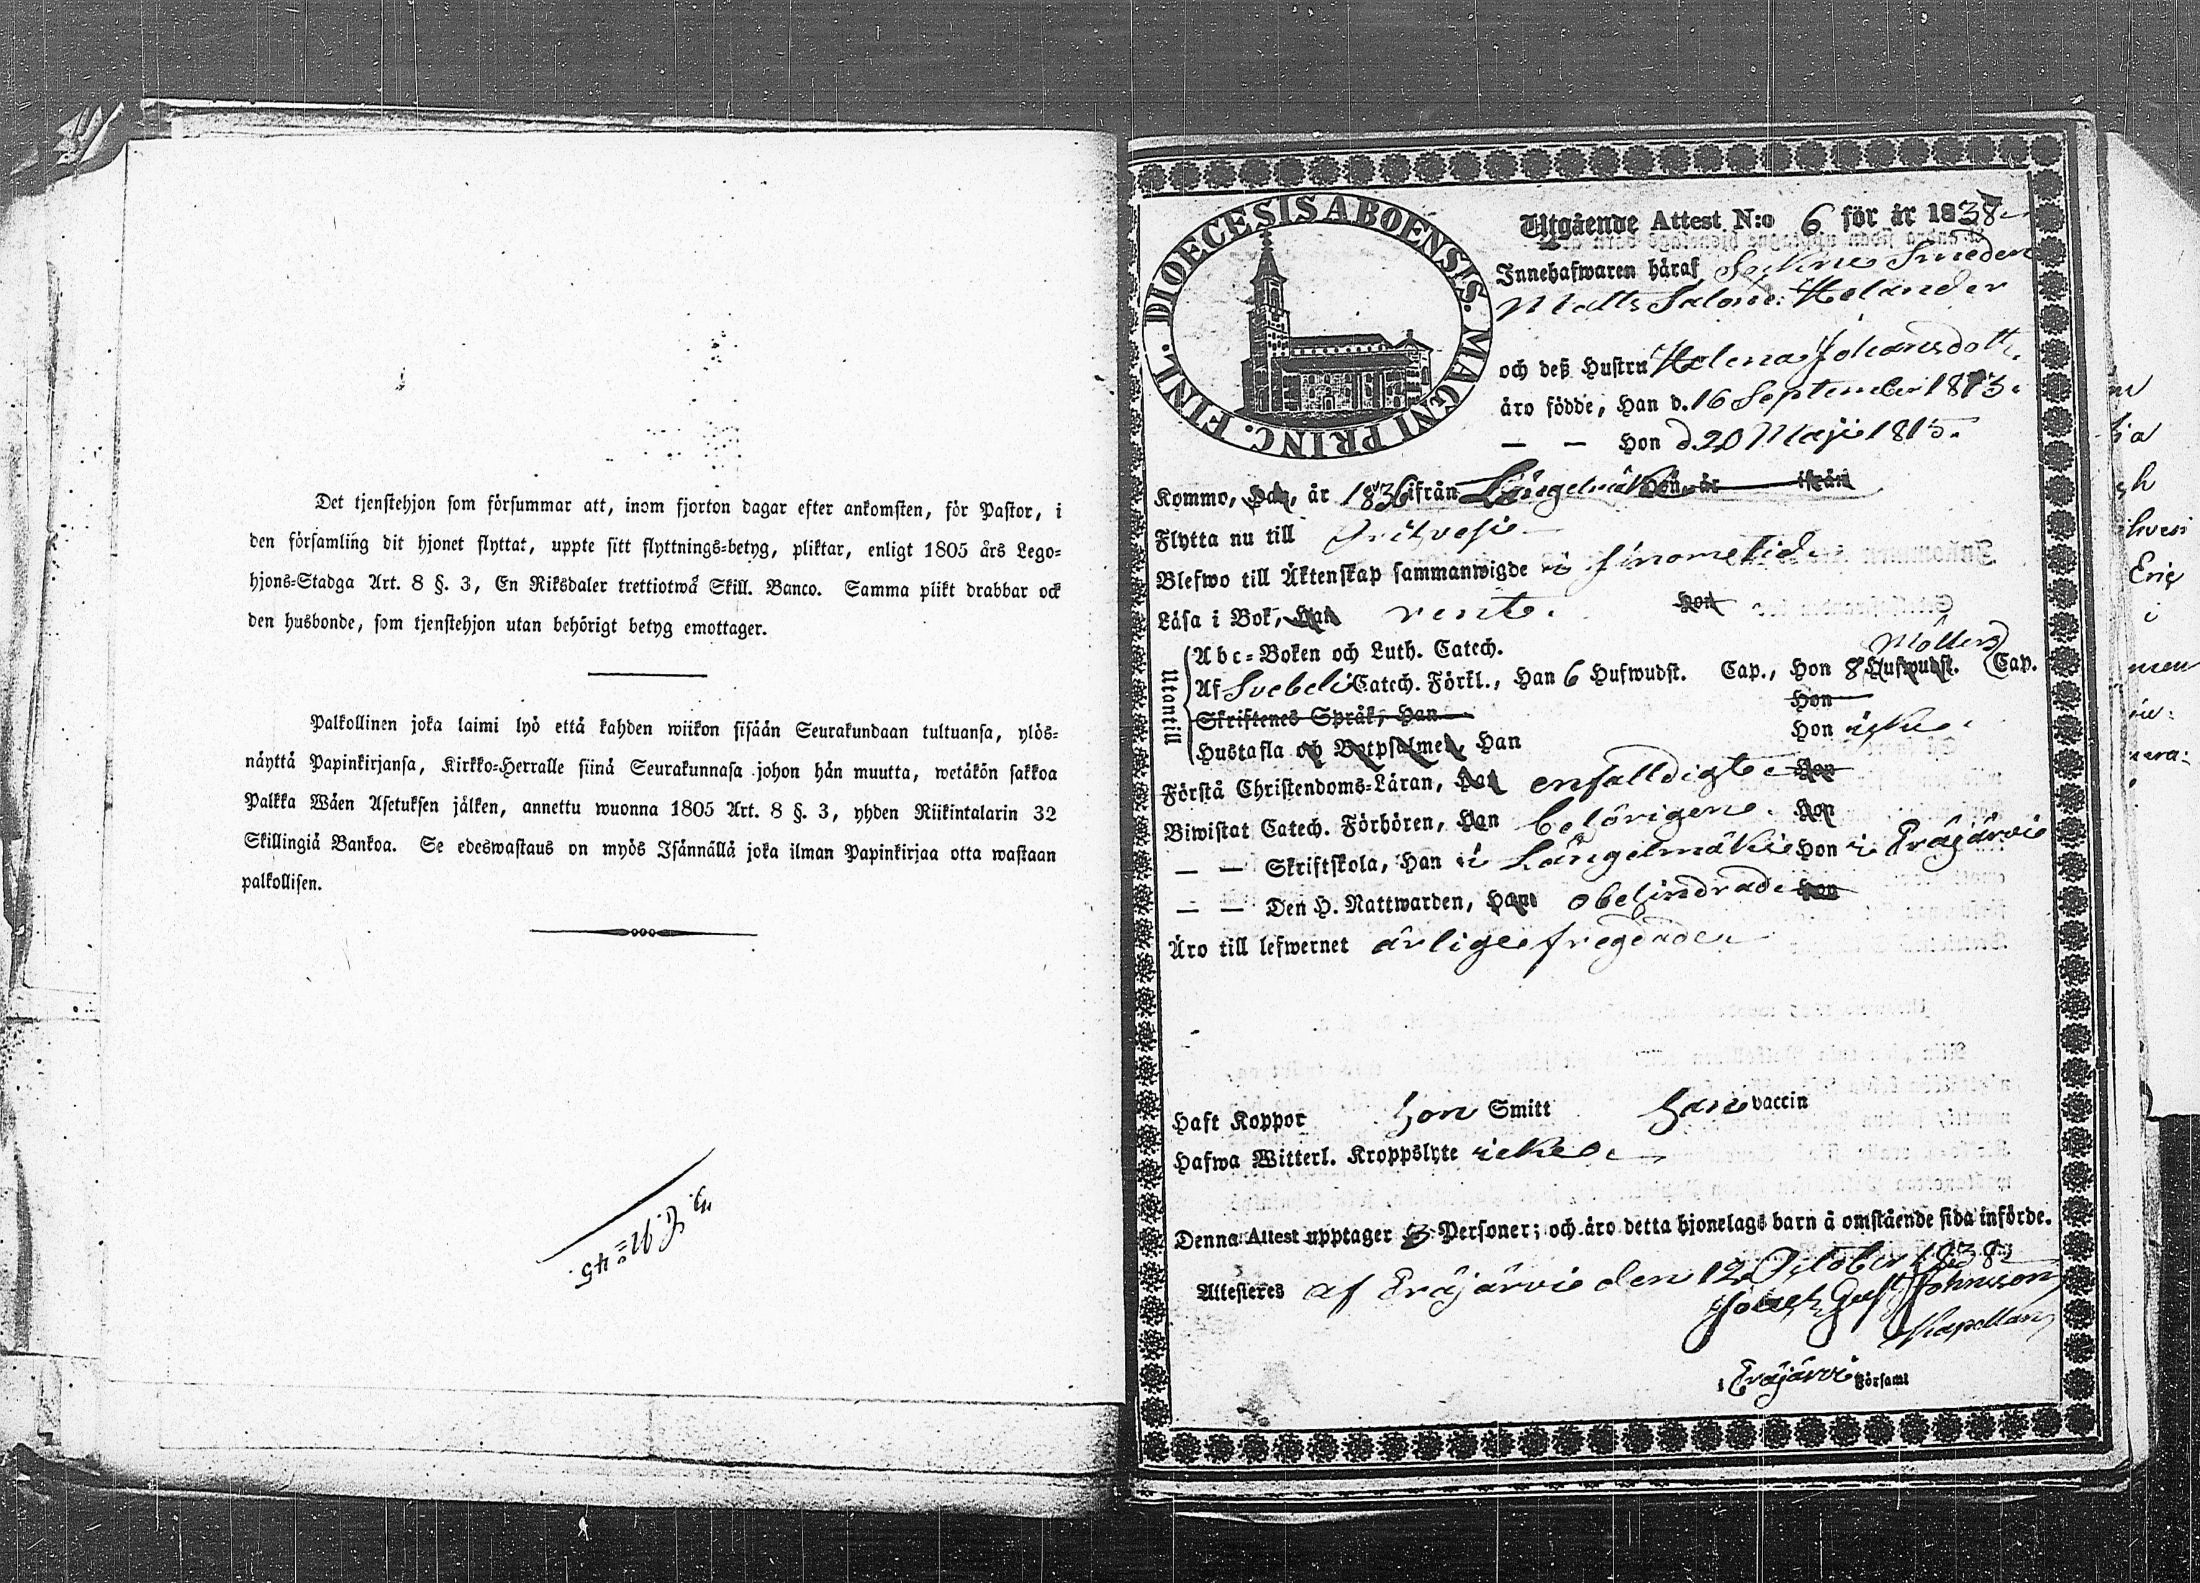 Det tjenstehjon som försummar att, inom fjorton dagar efter ankomsten, för Pastor, i
den församling dit hjonet flyttat, uppte sitt flyttnings=betyg, pliktar, enligt 1805 års Lego=
hjons=Stadga Art. 8 §. 3, En Riksdaler trettiotwå Skill. Banco. Samma plikt drabbar ock
den husbonde, som tjenstehjon utan behörigt betyg emottager.
Palkollinen joka laimi lyö että kahden wiikon sisään Seurakundaan tultuansa, ylös=
näyttä Papinkirjansa, Kirkko=Herralle siinä Seurakunnasa johon hän muutta, wetäkön sakkoa
Palkka Wäen Asetuksen jälken, annettu wuonna 1805 Art. 8 §. 3, yhden Riikintalarin 32
Skillingiä Bankoa. Se edeswastaus on myös Isännällä joka ilman Papinkirjaa otta wastaan
palkollisen.
No 45.
DIOECESIS ABOENSIS. MAGNI PRINC. FINL.
Utgående Attest N:o 6 för år 1838
Innehafwaren häraf Sockne Smeden
Matts Salom: Helander
och deß Hustru Helena Johansdott.
äro födde, Han d. 16 September 1813.
— — Hon d. 20 Maji 1815.
Kommo, Han, år 1836 ifrån Längelmäki Hon år ifrån
Flytta nu till Orihvesi
Blefwo till Äktenskap sammanwigde
Läsa i Bok, Han rent. Hon
Utantill
Abc=Boken och Luth. Catech.
Möllers
Af Svebeli Catech. Förkl., Han 6 Hufwudst. Cap., Hon 8 Hufwudst. Cap.
Skriftenes Språk, Han Hon
Hustafla och Botpsalmer, Han Hon icke
Förstå Christendoms=Läran, Han enfalldigt Hon
Biwistat Catech. Förhören, Han behörigen. Hon
— — Skriftskola, Han i Längelmäki Hon i Eräjärvi
— — Den H. Nattwarden, Han obehindrade Hon
Äro till lefwernet ärlige fregdade
Haft Koppor hon Smitt han vaccin
Hafwa Witterl. Kroppslyte icke
Denna Attest upptager 3 Personer; och äro detta hjonelags barn å omstående sida införde.
Attesteres af Eräjärvi den 12 October 1838
Josef Gust Johnsson
Kapellan
i Eräjärvi Församl